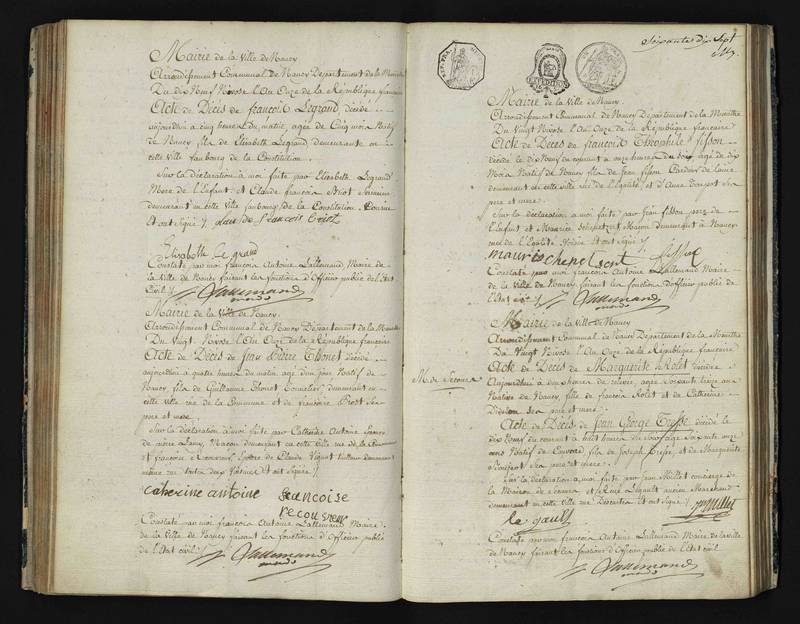 Mairie de la Ville de Nancy
Arrondissement Communal de Nancy Département de la Meurthe
Du dix neuf Nivôse l'An Onze de la République française
Acte de Décès de françois Legrand, décédé
aujourdhui a cinq heures du matin, agé de Cinq mois Natif
de Nancy fils de Elisabeth Legrand demeurant en
cette Ville faubourg de la Constitution.
Sur la déclaration à moi faite par Elisabeth Legrand
Mere de l'Enfant et Claude françois
demeurant en cette Ville faubourg de la Constitution
Et ont signé
Elisabethe Le grand
Constaté par moi françois Antoine Lallemand Maire de
la Ville de Nancy faisant les fonctions d'Officier public de l'Etat
Civil
Lallemand
Mairie de la Ville de Nancy.
Arrondissement Communal de Nancy Département de la Meurthe
Du Vingt Nivôse l'An Onze de la République française
Acte de Décès de Jean Pierre Thonet décédé
aujourdhui a quatre heures du matin agé d'un jour Natif de
Nancy, fils de Guillaume Thonet Tonnelier demeurant en
cette Ville rue de la Commune et de françoise Prost ses
pere et mere.
Sur la déclaration à moi faite par Catherine Antoine
Maçon demeurant en cette Ville rue de la Commune
et françoise
Et ont signés
catherine antoine francoise
recouvreur
Constaté par moi françois Antoine Lallemand Maire
de la Ville de Nancy faisant les fonctions d'Officier public
de l'Etat civil
Lallemand
Soixante dix Sept
Mairie de la Ville de Nancy.
Arrondissement Communal de Nancy Département de la Meurthe
Du Vingt Nivôse l'An Onze de la République française
Acte de Décès de françois Théophile fisson
décédé le dix Neuf du courant a onze heures du soir agé de dix
Mois Natif de Nancy fils de Jean fisson Cardeur de laine
demeurant en cette Ville rue de l'Egalité et d'Anne ses
pere et mere
Sur la déclaration à moi faite par Jean fisson pere de
l'Enfant et Maurice Maçon demeurant à Nancy
rue de l'Egalité Et ont signé
maurice
Constaté par moi françois Antoine Lallemand Maire
de la Ville de Nancy faisant les fonctions d'officier public de
l'Etat civil
Lallemand
Mairie de la Ville de Nancy
Arrondissement Communal de Nancy Département de la Meurthe
Du Vingt Nivôse l'An Onze de la République française
Mon. de Secours
Acte de Décès de Marguerite Rolet décédée
Aujourdhui a deux heures de relevée, agée soixante treize ans
Native de Nancy, fille de françois Rolet et de Catherine
Didelon ses pere et mere.
Acte de Décès de Jean George Tresse décédé le
dix Neuf du courant a huit heures du soir agé Soixante onze
ans Natif de fils de Joseph Tresse et de Marguerite
ses pere et mere.
Sur la déclaration à moi faite par Jean Millet concierge de
la Maison de secours et Legault ancien Marchand
demeurant en cette Ville Et ont signé
le gault
Millet
Constaté par moi françois Antoine Lallemand Maire de la Ville
de Nancy faisant les fonctions d'Officier public de l'Etat civil
Lallemand